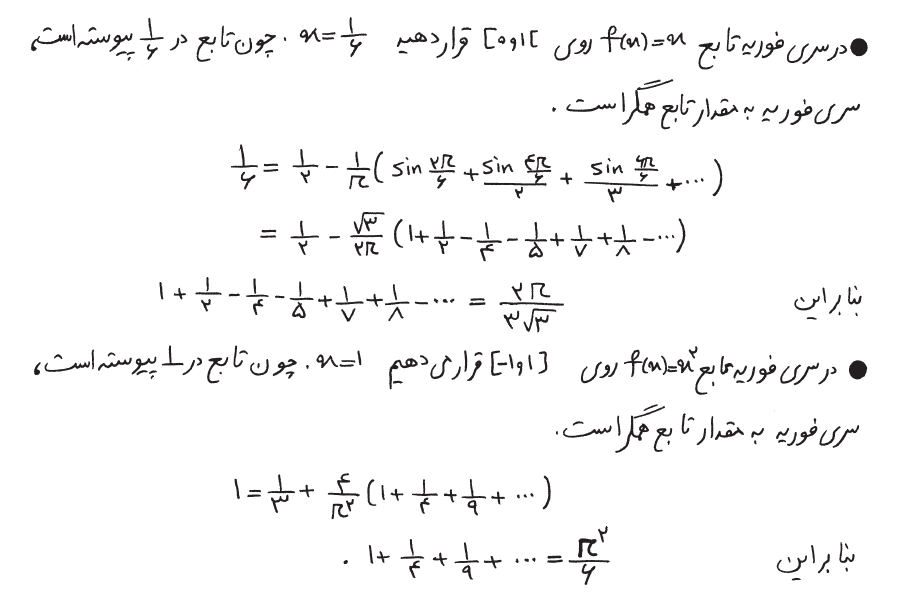 ● در سری فوریه تابع f(x)=x روی [۰و۱] قرار دهید x=۱/۶ . چون تابع در ۱/۶ پیوسته است،
سری فوریه به مقدار تابع همگرا است .
۱/۶ = ۱/۲ - ۱/π ( sin ۲π/۶ + (sin ۴π/۶)/۲ + (sin ۶π/۶)/۳ + ... )
= ۱/۲ - √۳/۲π (۱ + ۱/۲ - ۱/۴ - ۱/۵ + ۱/۷ + ۱/۸ - ...)
بنابراین ۱ + ۱/۲ - ۱/۴ - ۱/۵ + ۱/۷ + ۱/۸ - ... = ۲π/۳√۳
● در سری فوریه تابع f(x)=x² روی [-۱و۱] قرار می دهیم x=۱ . چون تابع در ۱ پیوسته است،
سری فوریه به مقدار تابع همگرا است.
۱ = ۱/۳ + ۴/π² (۱ + ۱/۴ + ۱/۹ + ... )
بنابراین ۱ + ۱/۴ + ۱/۹ + ... = π²/۶ .